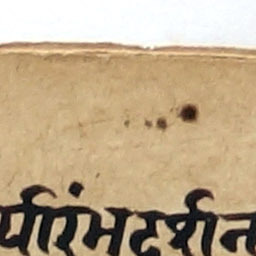 र्यारंभदर्शन